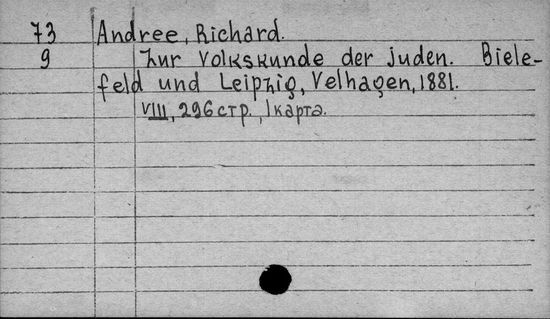 73 Andree, Richard.
9 Zur Volkskunde der Juden. Biele-
feld und Leipzig, Velhagen, 1881.
VIII, 296 стр., 1 карта.